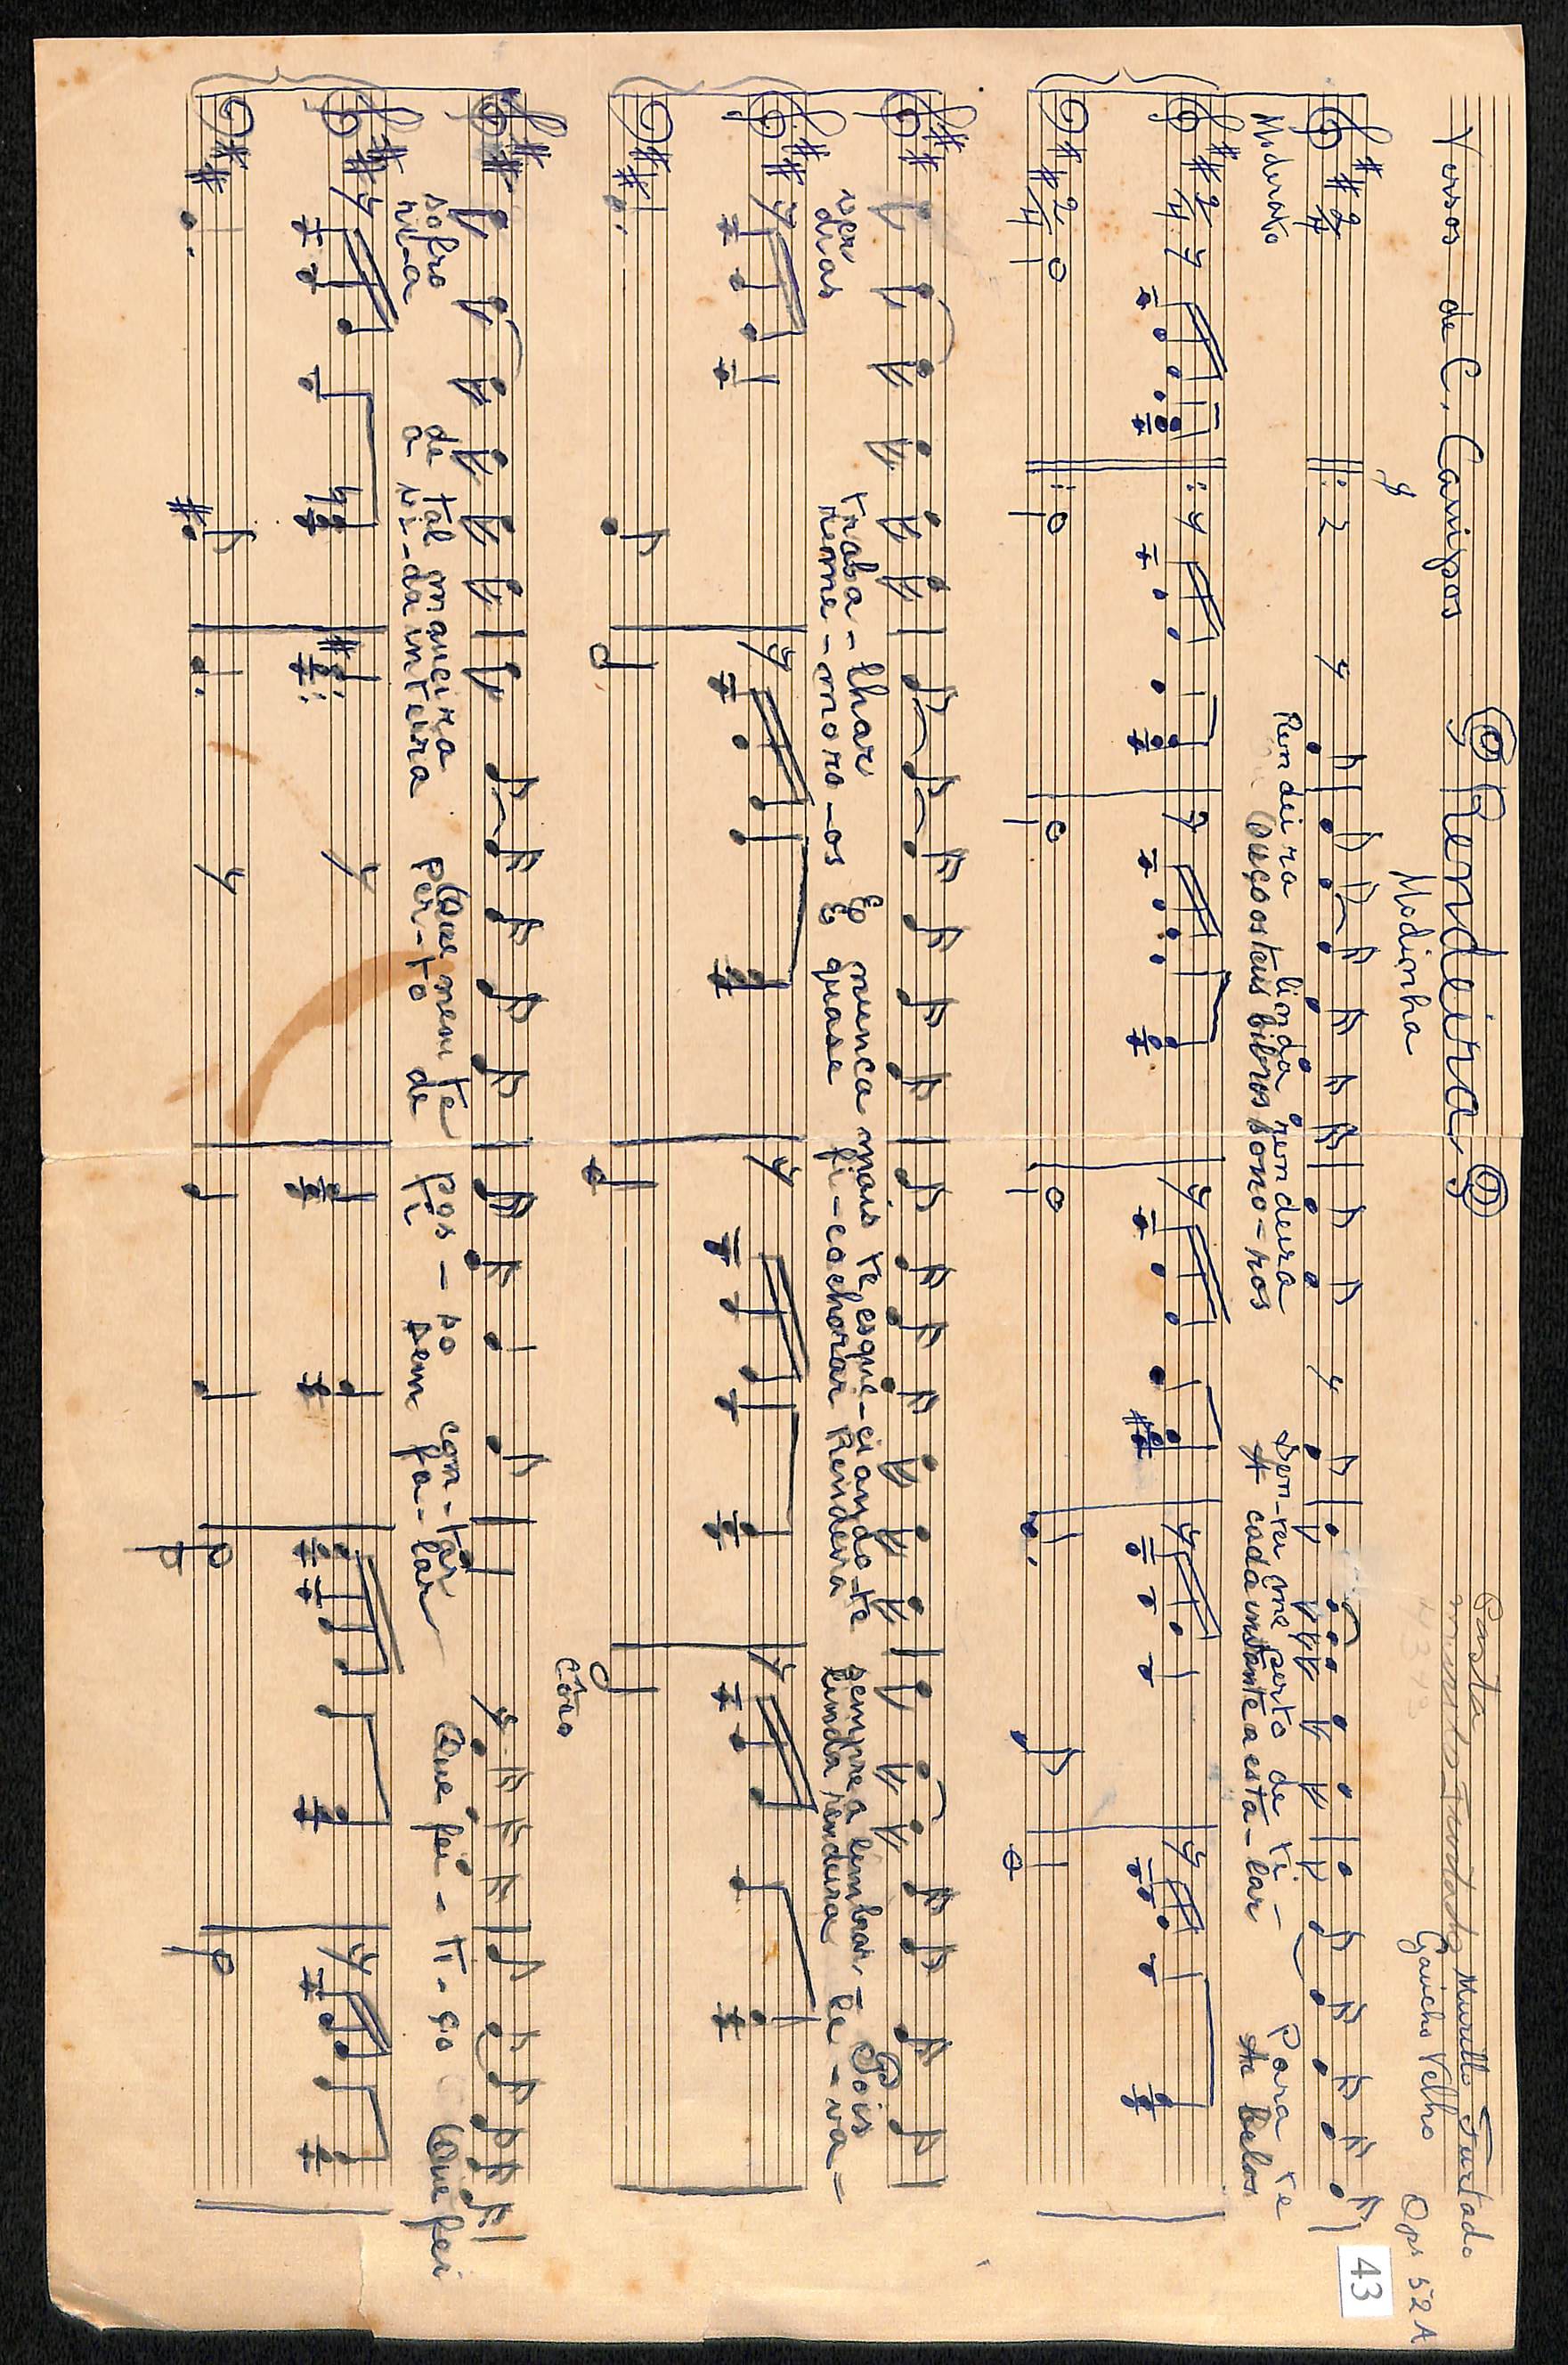 Versos de C. Campos
Rendeira
Modinha
Pasta
Murillo Furtado
Gaúcho Velho
Ops 52A
43
Moderato
Rendeira linda rendeira Sen-tei me perto de ti- Para te
Ouço os teus bilros sono-ros A cada instante a esta-lar Ao belos
ver traba-lhar E nunca mais te esque-ci ando-te sempre a lembrar- Pois
dias reme-moro-os E quase fi-co a chorar Rendeira linda rendeira le-va-
Côro
sofro de tal maneira Que nem te pos-so con-tar Que fei-ti-ço Que fei
ri-a a vi-da inteira per-to de ti sem fa-lar